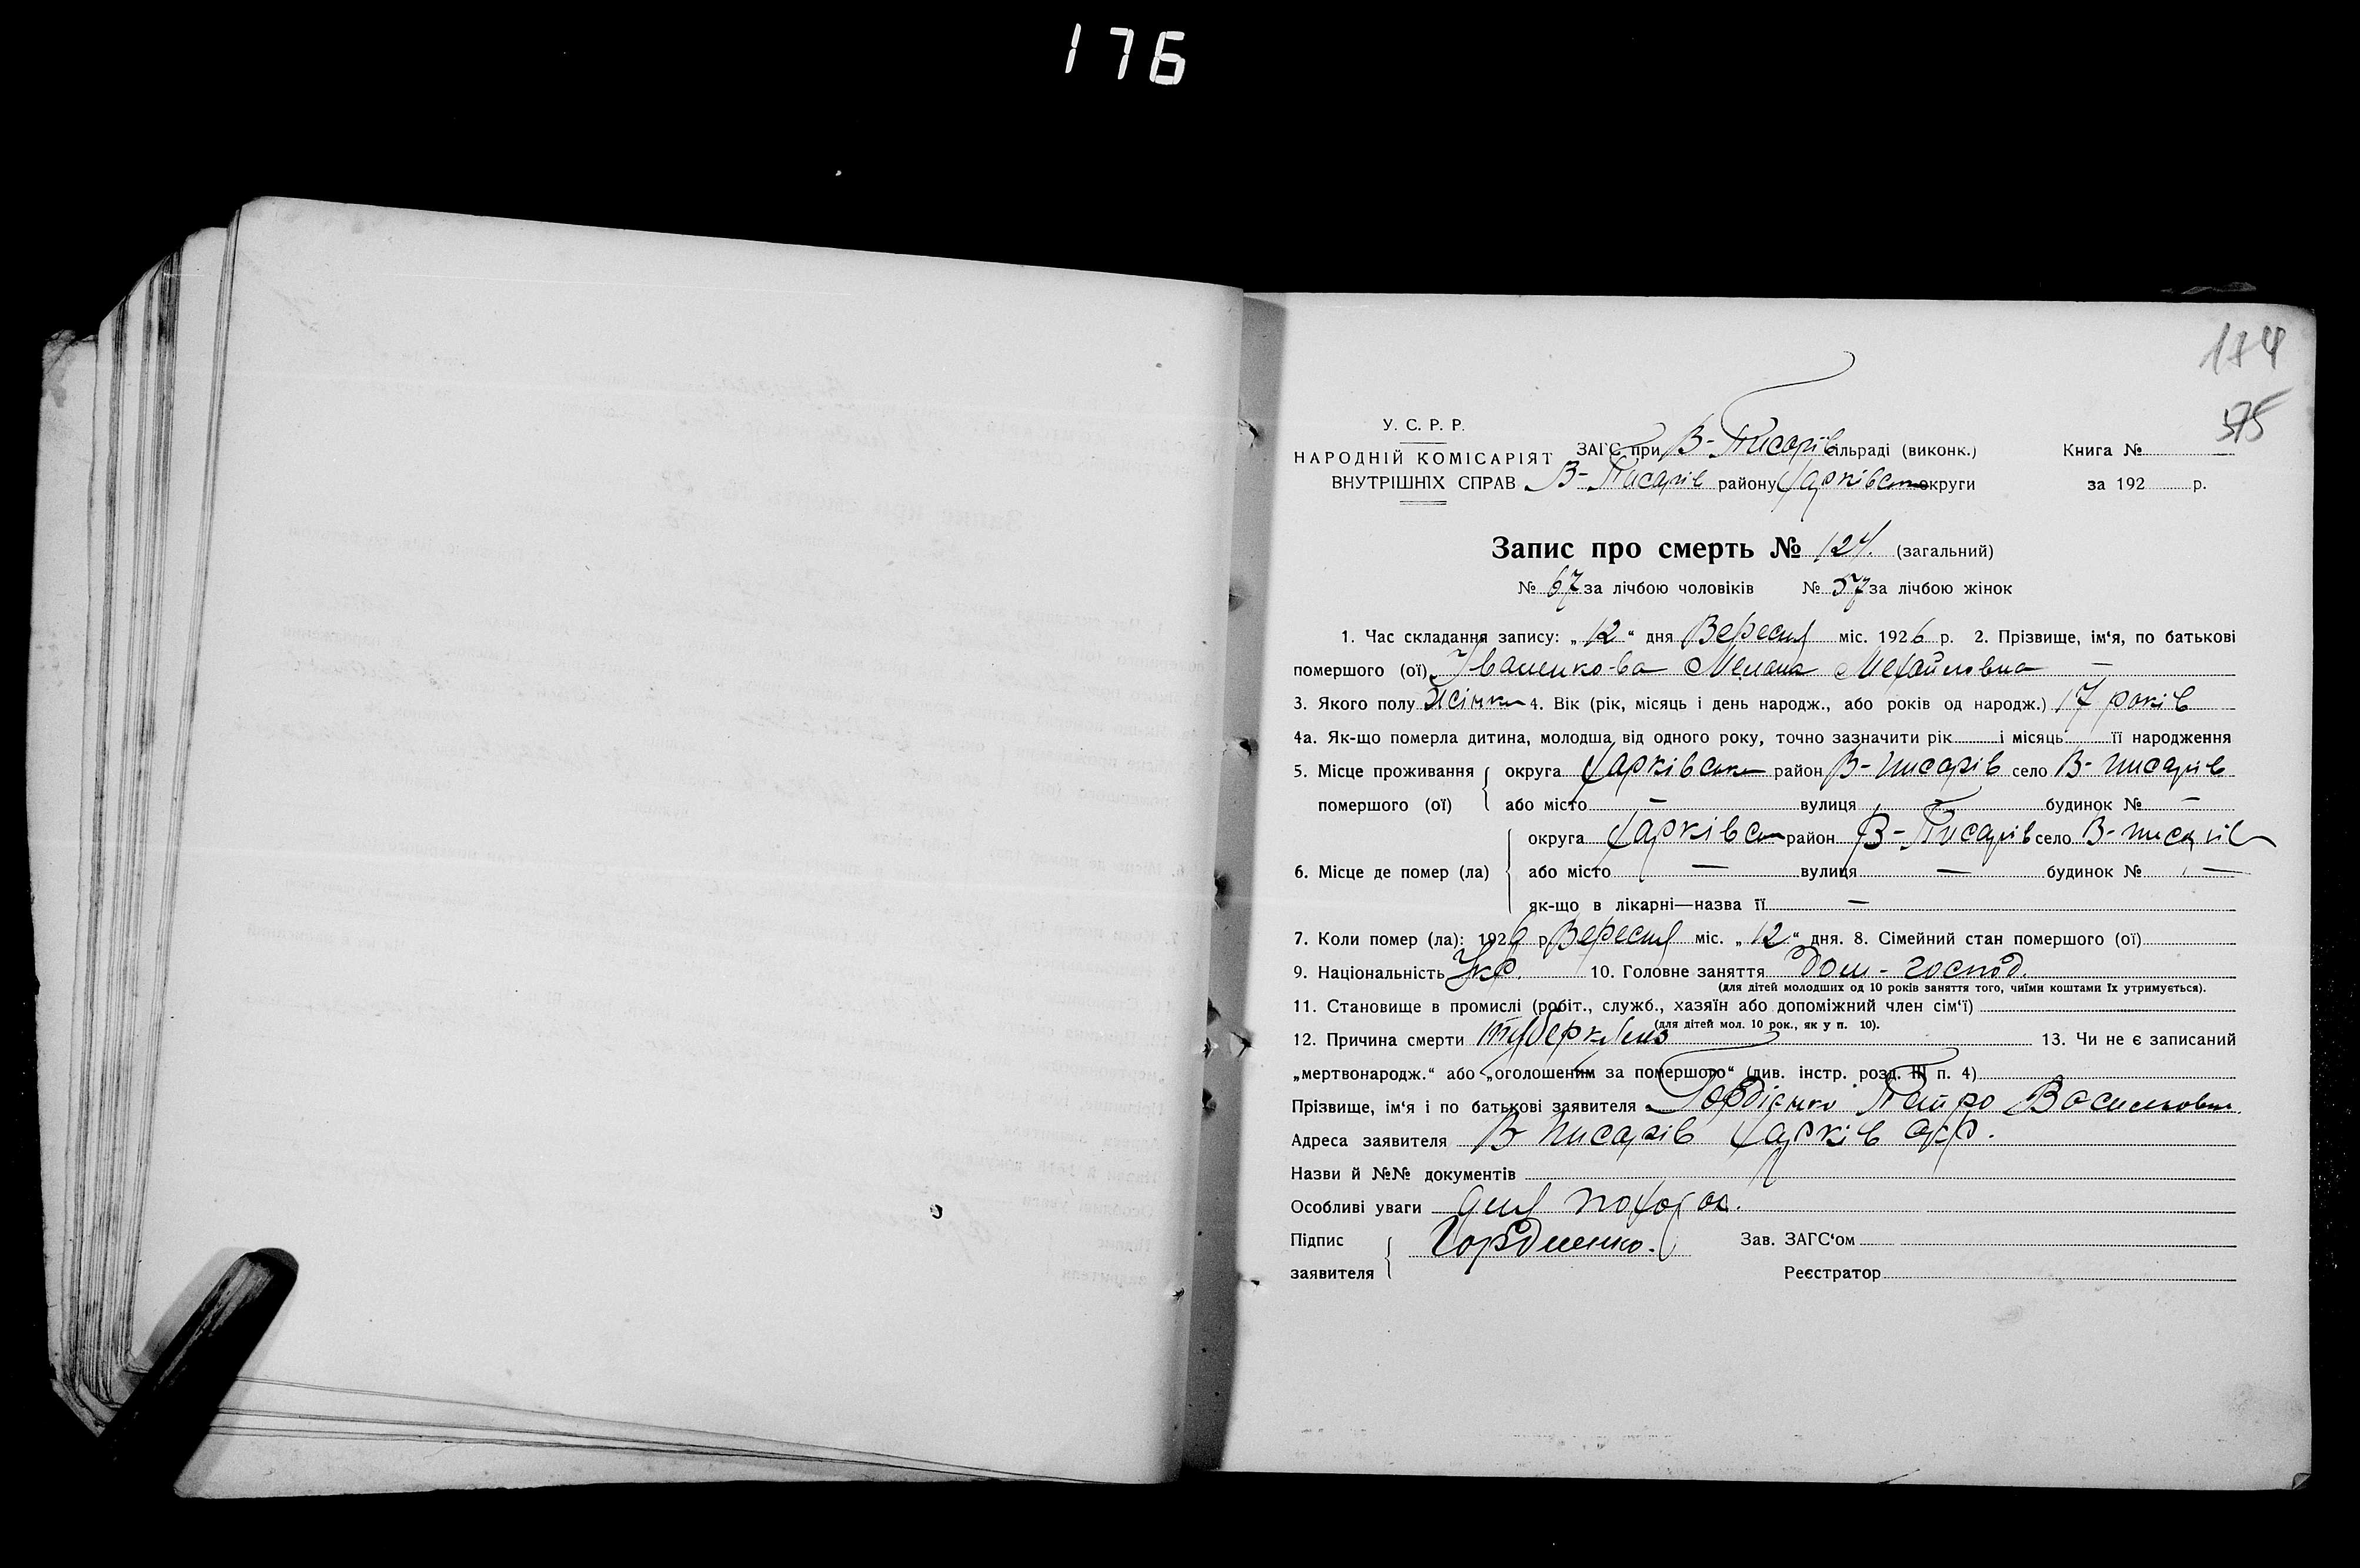 176
174
375
У. С. Р. Р.
НАРОДНІЙ КОМІСАРІЯТ
ВНУТРІШНІХ СПРАВ
ЗАГС при В-Писарів сільраді (виконк.)
В-Писарів району Харківськ округи
Книга №
за 192 р.
Запис про смерть № 124. (загальний)
№ 67 за лічбою чоловіків № 57 за лічбою жінок
1. Час складання запису: „12“ дня Вересня міс. 1926 р. 2. Прізвище, ім‘я, по батькові
помершого (ої) Іваненкова Мелана Мехайловна —
3. Якого полу Жінка 4. Вік (рік, місяць і день народж., або років од народж.) 17 років
4а. Як-що померла дитина, молодша від одного року, точно зазначити рік і місяць її народження
5. Місце проживання помершого (ої) округа Харківськ район В-Писарів село В-Писарів
або місто — вулиця — будинок № —
6. Місце де помер (ла) округа Харківськ район В-Писарів село В-Писарів
або місто — вулиця — будинок № —
як-що в лікарні—назва її —
7. Коли помер (ла): 1926 р. Вересня міс. „12“ дня. 8. Сімейний стан помершого (ої)
9. Національність Укр. 10. Головне заняття Дом-господ.
(для дітей молодших од 10 років заняття того, чиїми коштами їх утримується).
11. Становище в промислі (робіт., служб., хазяїн або допоміжний член сім‘ї)
(для дітей мол. 10 рок., як у п. 10).
12. Причина смерти 13. Чи не є записаний
„мертвонародж.“ або „оголошеним за помершого“ (див. інстр. розд. III п. 4)
Прізвище, ім‘я і по батькові заявителя Гордієнко Петро Васильович
Адреса заявителя В Писарів Харків окр.
Назви й №№ документів
Особливі уваги для похорон.
Підпис заявителя Гордиенко.
Зав. ЗАГС‘ом
Реєстратор